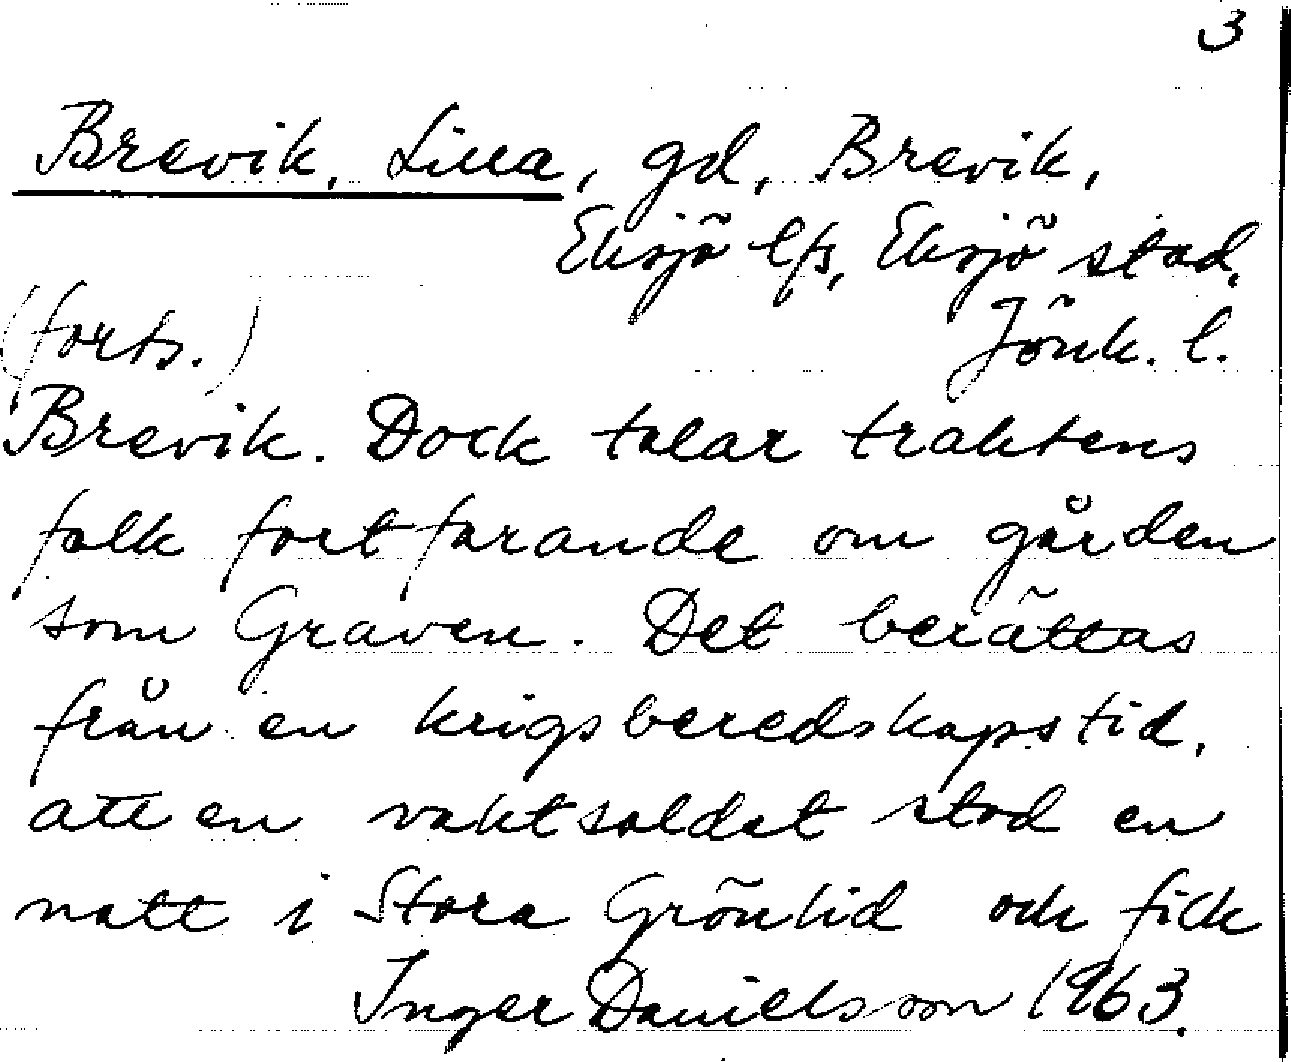 3
Brevik, Lilla, gd, Brevik,
Eksjö lfs, Eksjö stad,
(forts.) Jönk. l.
Brevik. Dock talar traktens
folk fortfarande om gården
som Graven. Det berättas
från en krigsberedskapstid,
att en vaktsoldat stod en
natt i Stora Grönlid och fick
Inger Danielsson 1963.